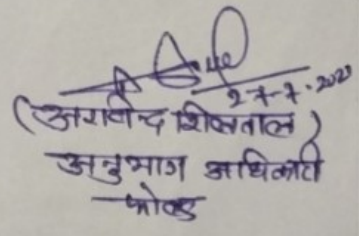 27-7-2021
(अरविन्द शिलवाल)
अनुभाग अधिकारी